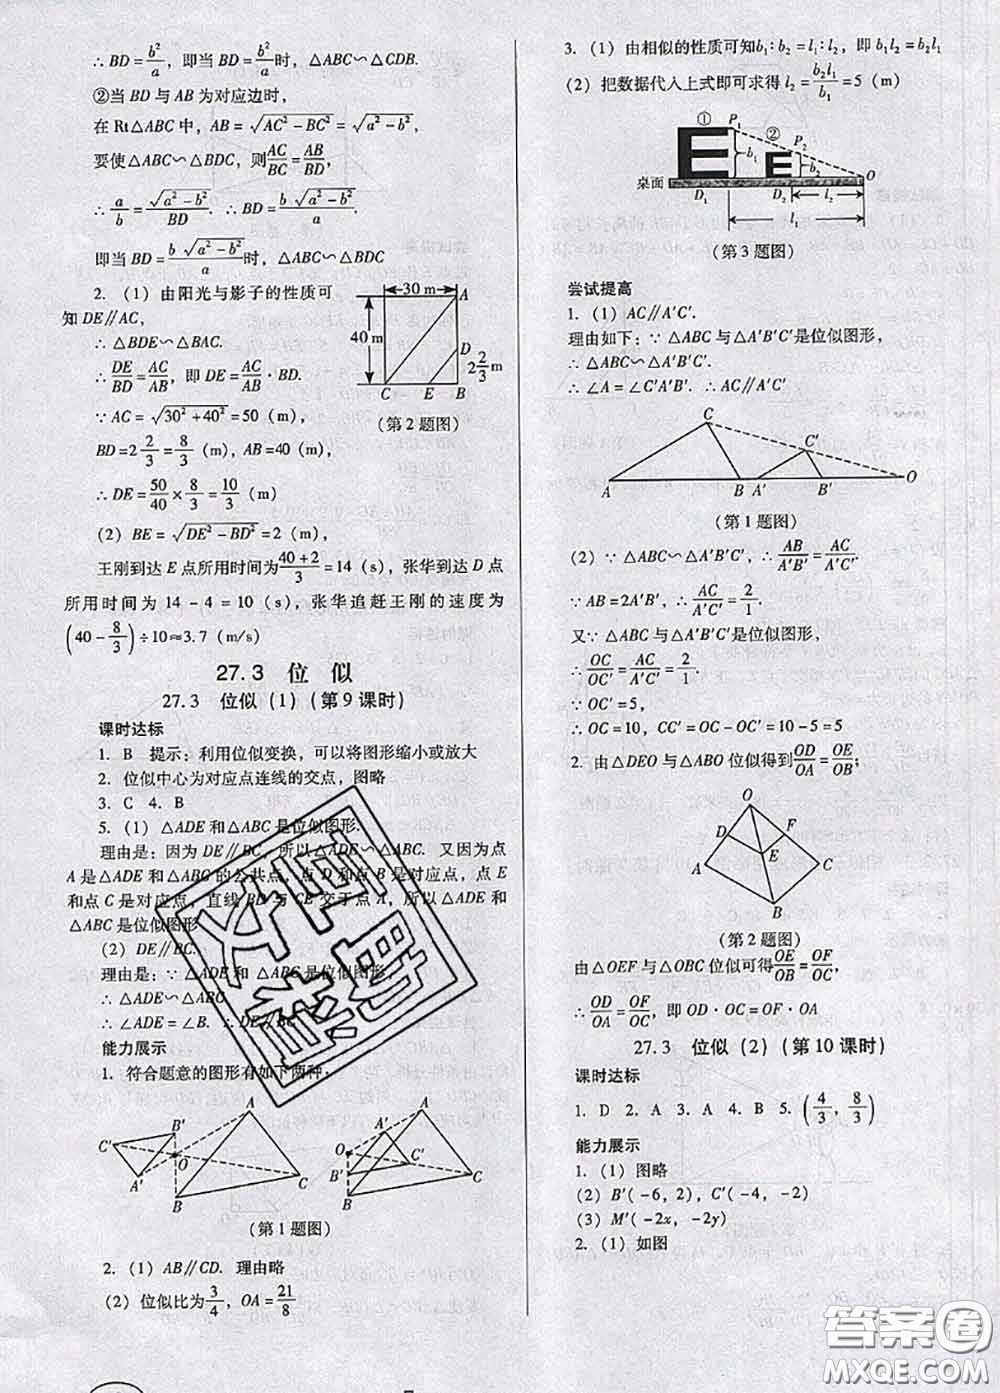 ∴ BD=b²/a，即当 BD=b²/a时，△ABC∽△CDB.
②当 BD 与 AB 为对应边时，
在 Rt△ABC 中，AB=√(AC²-BC²)=√(a²-b²)，
要使△ABC∽△BDC，则AC/BC=AB/BD，
∴ a/b=√(a²-b²)/BD. ∴ BD=b√(a²-b²)/a
即当 BD=b√(a²-b²)/a时，△ABC∽△BDC
2. （1）由阳光与影子的性质可
知 DE∥AC，
∴ △BDE∽△BAC.
∴ DE/BD=AC/AB，即 DE=AC/AB·BD.
∵ AC=√(30²+40²)=50（m）
BD=2 2/3=8/3（m），AB=40（m）
∴ DE=50/40×8/3=10/3（m）
30 m
A
40 m
D
2 2/3 m
C E B
（第 2 题图）
（2）BE=√(DE²-BD²)=2（m），
王刚到达 E 点所用时间为(40+2)/3=14（s），张华到达 D 点
所用时间为 14-4=10（s），张华追赶王刚的速度为
(40-8/3)÷10≈3.7（m/s）
27.3 位 似
27.3 位似（1）（第 9 课时）
课时达标
1. B 提示：利用位似变换，可以将图形缩小或放大
2. 位似中心为对应点连线的交点，图略
3. C 4. B
5. （1）△ADE 和△ABC 是位似图形.
理由是：因为 DE∥BC，所以△ADE∽△ABC. 又因为点
A 是△ADE 和△ABC 的公共点，点 D 和点 B 是对应点，点 E
和点 C 是对应点，直线 BD 与 CE 交于点 A，所以△ADE 和
△ABC 是位似图形
（2）DE∥BC.
理由是：∵ △ADE 和 △ABC 是位似图形，
∴ △ADE∽△ABC
∴ ∠ADE=∠B. ∴ DE∥BC
能力展示
1. 符合题意的图形有如下两种：
A
B′
C′
O
A′
C
B
A
A′
O
C′
B′
C
B
（第 1 题图）
2. （1）AB∥CD. 理由略
（2）位似比为3/4，OA=21/8
3. （1）由相似的性质可知b₁∶b₂=l₁∶l₂，即 b₁l₂=b₂l₁
（2）把数据代入上式即可求得 l₂=b₂l₁/b₁=5（m）
①
P₁
②
P₂
b₁
b₂
O
桌面
D₁
D₂
l₂
l₁
（第 3 题图）
尝试提高
1. （1）AC∥A′C′.
理由如下：∵ △ABC 与△A′B′C′是位似图形，
∴ △ABC∽△A′B′C′.
∴ ∠A=∠C′A′B′. ∴ AC∥A′C′
C
C′
A B A′ B′ O
（第 1 题图）
（2）∵ △ABC∽△A′B′C′，∴ AB/A′B′=AC/A′C′.
∵ AB=2A′B′，∴ AC/A′C′=2/1.
又∵ △ABC 与△A′B′C′是位似图形，
∴ OC/OC′=AC/A′C′=2/1.
∵ OC′=5，
∴ OC=10，CC′=OC-OC′=10-5=5
2. 由△DEO 与△ABO 位似得到OD/OA=OE/OB；
O
D F
E
A C
B
（第 2 题图）
由△OEF 与△OBC 位似可得OE/OB=OF/OC，
∴ OD/OA=OF/OC，即 OD·OC=OF·OA
27.3 位似（2）（第 10 课时）
课时达标
1. D 2. A 3. A 4. B 5. (4/3，8/3)
能力展示
1. （1）图略
（2）B′(-6，2)，C′(-4，-2)
（3）M′(-2x，-2y)
2. （1）如图
答案圈
MXQE.COM